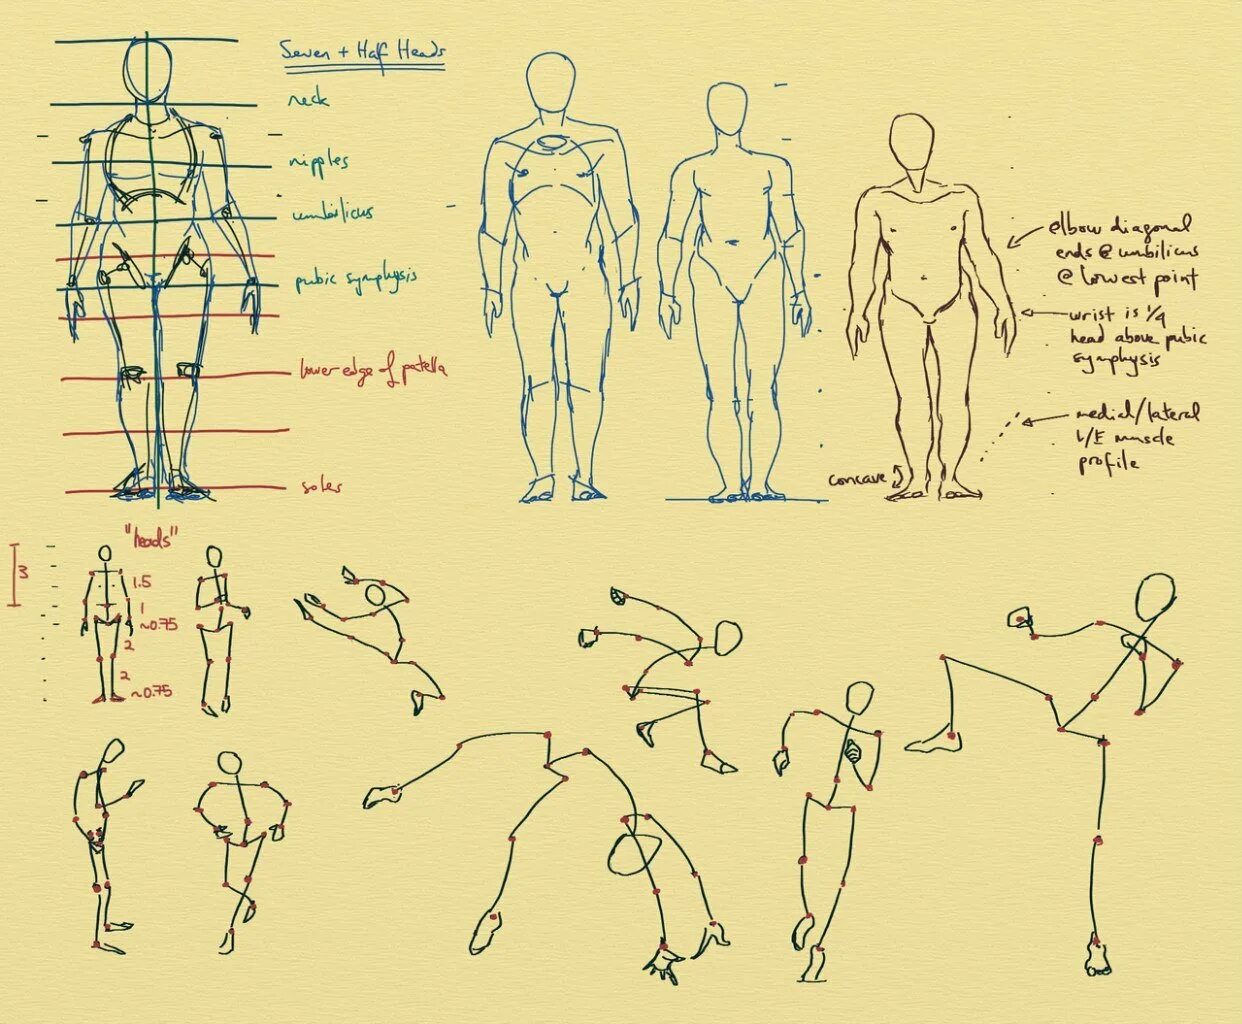 Seven + Half Heads
neck
nipples
umbilicus
pubic symphysis
lower edge of patella
soles
elbow diagonal
ends @ umbilicus
@ lowest point
wrist is 1/4
head above pubic
symphysis
medial/lateral
muscle
profile
concave
"heads"
3
1.5
1
~0.75
2
2
~0.75